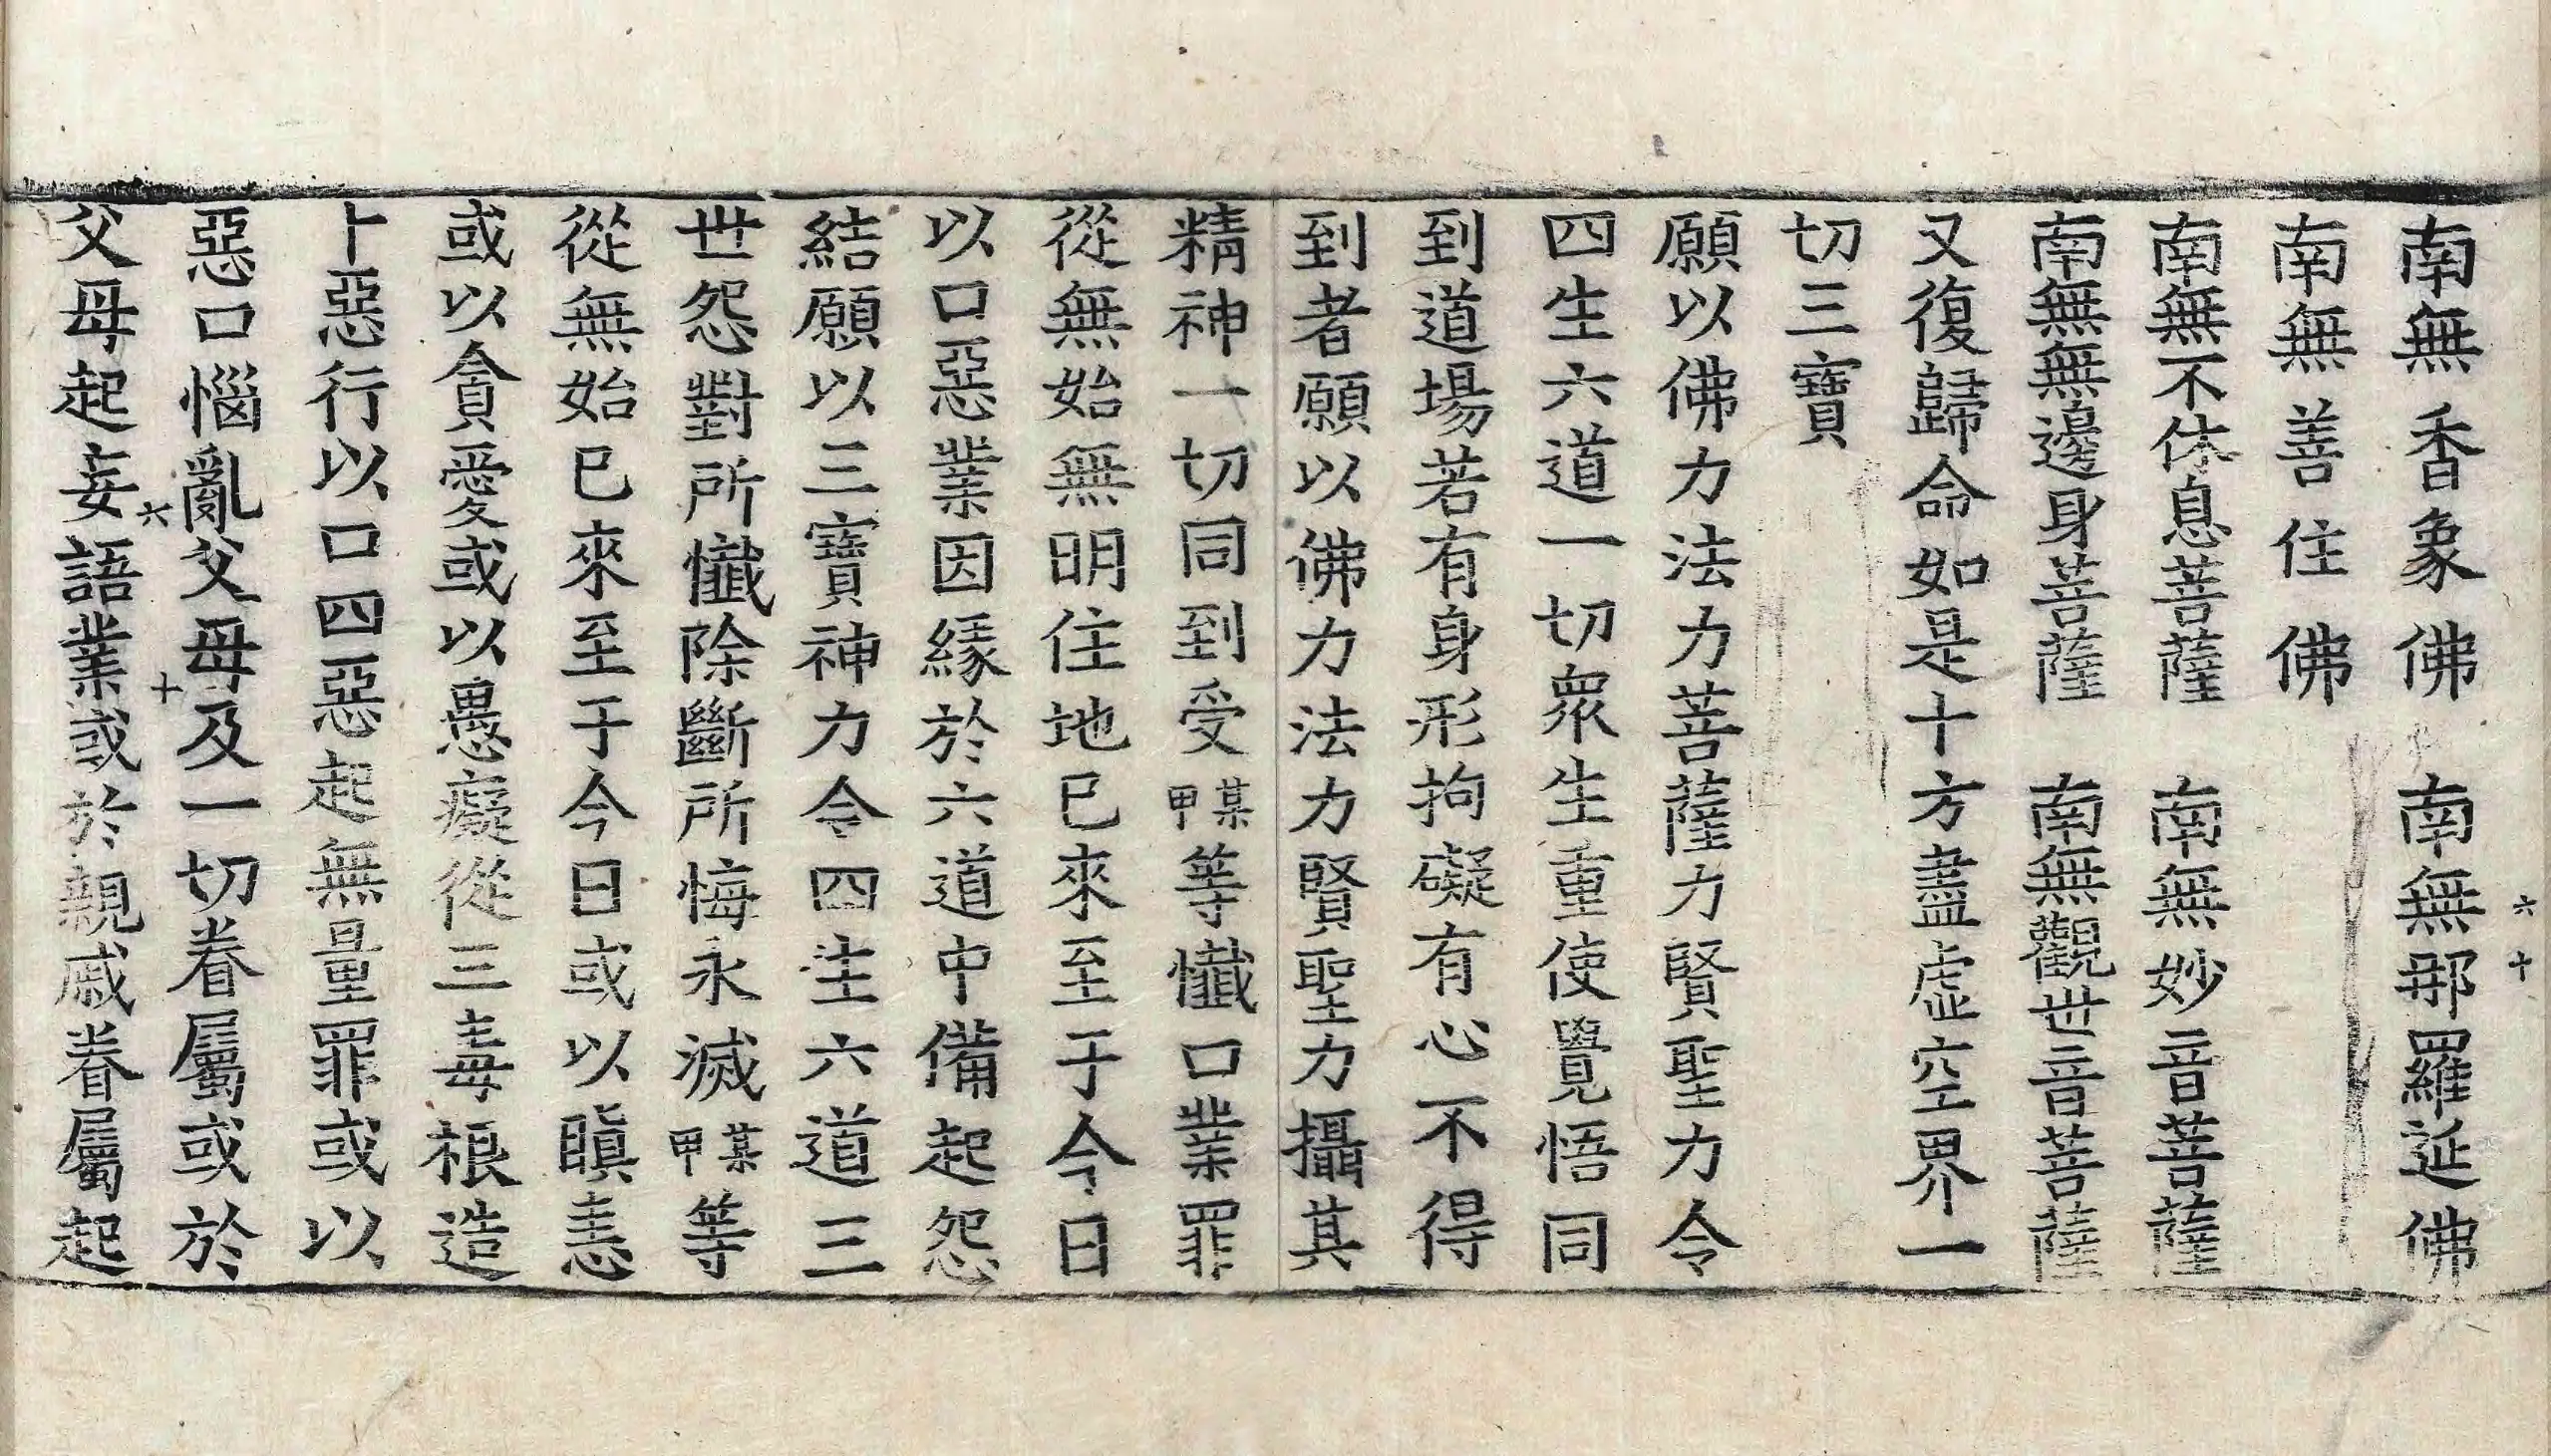 南無香象佛　南無那羅延佛
六十
南無善住佛
南無不休息菩薩　南無妙音菩薩
南無無邊身菩薩　南無觀世音菩薩
又復歸命如是十方盡虛空界一
切三寶
願以佛力法力菩薩力賢聖力令
四生六道一切眾生重使覺悟同
到道場若有身形拘礙有心不得
到者願以佛力法力賢聖力攝其
精神一切同到受某甲等懺口業罪
從無始無明住地已來至于今日
以口惡業因緣於六道中備起怨
結願以三寶神力令四生六道三
世怨對所懺除斷所悔永滅某甲等
從無始已來至于今日或以瞋恚
或以貪愛或以愚癡從三毒根造
十惡行以口四惡起無量罪或以
惡口惱亂父母及一切眷屬或於
六十
父母起妄語業或於親戚眷屬起